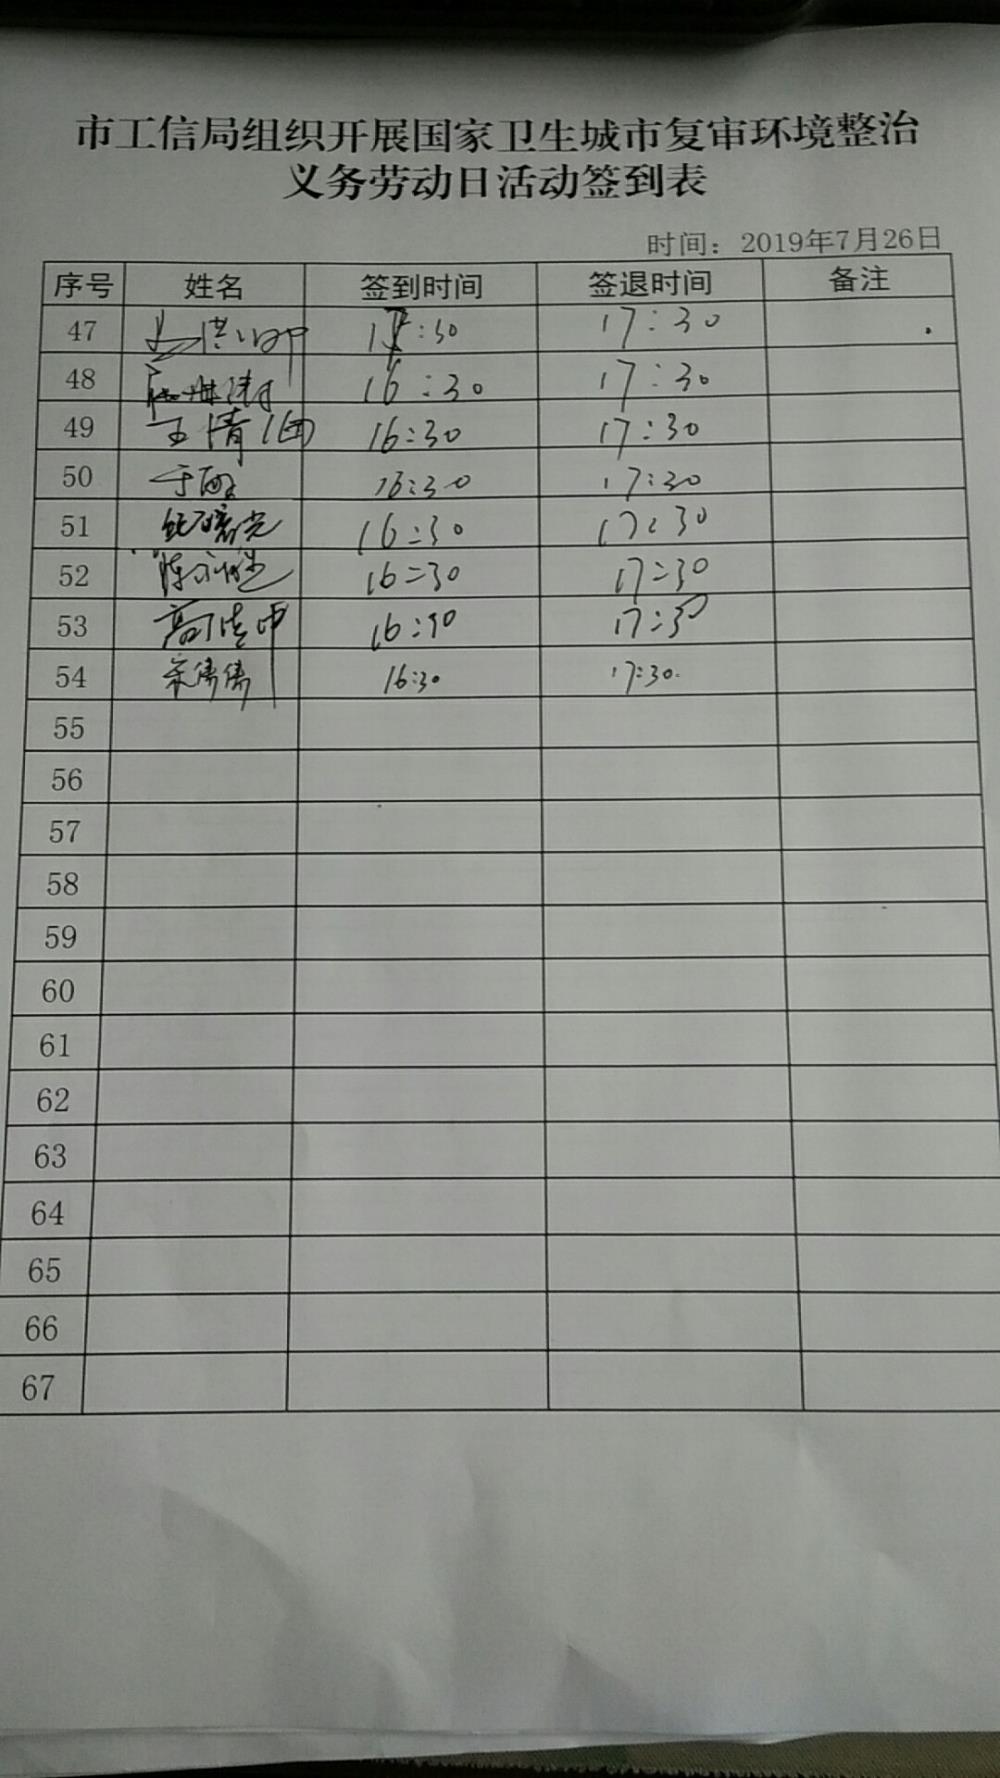 市工信局组织开展国家卫生城市复审环境整治
义务劳动日活动签到表
时间：2019年7月26日
序号 姓名 签到时间 签退时间 备注
47 :30 17:30
48 16:30 17:30
49 王倩 16:30 17:30
50 于 16:30 17:30
51 16:30 17:30
52 陈 16:30 17:30
53 高 16:30 17:30
54 宋倩倩 16:30 17:30
55
56
57
58
59
60
61
62
63
64
65
66
67